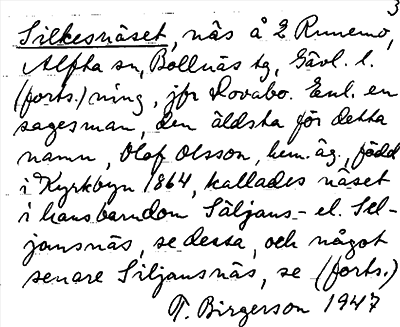 3
Silkesnäset, näs å 2 Runemo,
Alfta sn, Bollnäs tg, Gävl. l.
(forts.) ning, jfr Lovabo. Enl. en
sagesman, den äldsta för detta
namn, Olof Olsson, hem.äg., född
i Kyrkbyn 1864, kallades näset
i hans barndom Säljans- el. Sel-
jansnäs, se dessa, och något
senare Siljansnäs, se (forts.)
T. Birgerson 1947